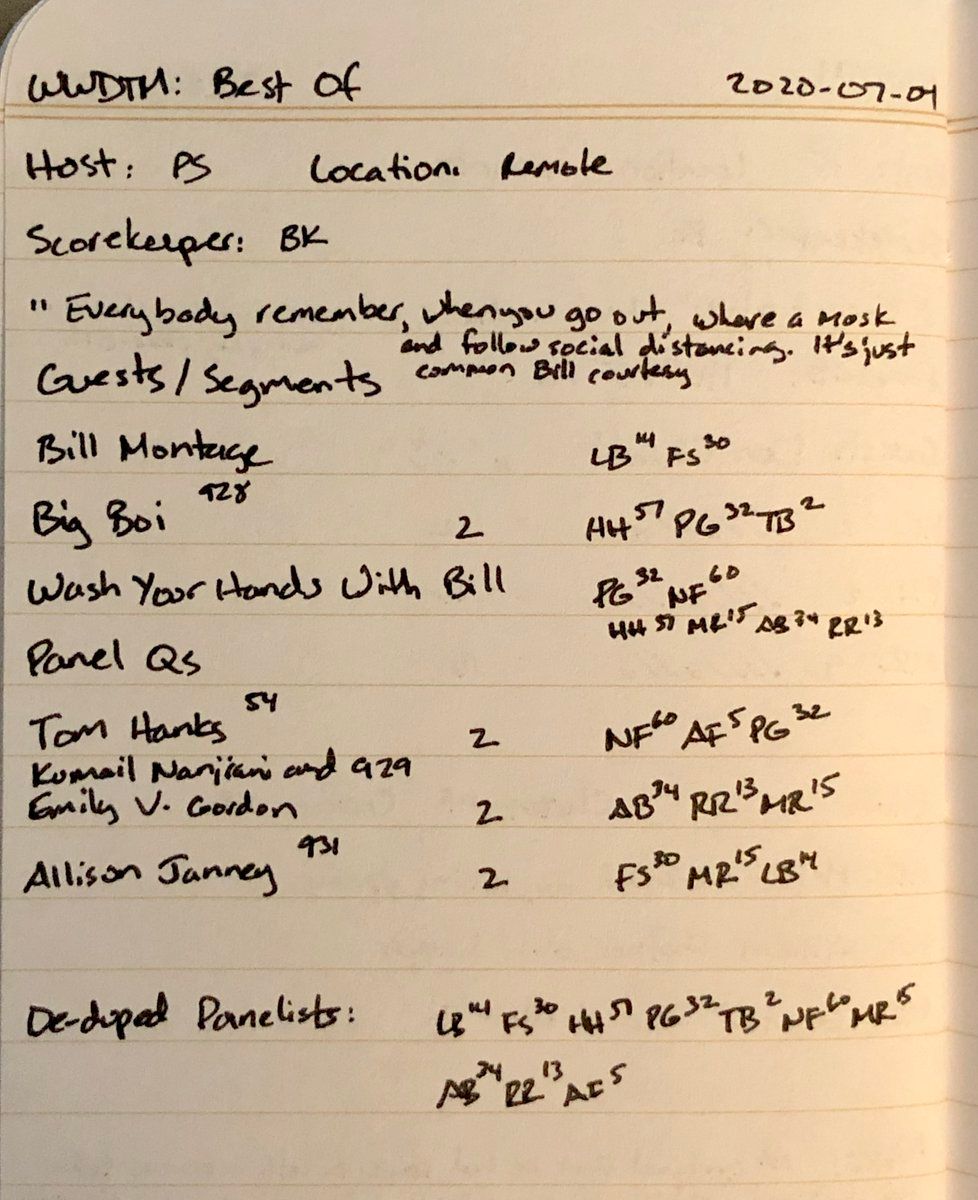 WWDTM: Best Of 2020-07-04
Host: PS Location: Remote
Scorekeeper: BK
" Everybody remember, when you go out, where a mask
and follow social distancing. It's just
common Bill courtesy
Guests/Segments
Bill Montage LB¹⁴ FS³⁰
Big Boi ⁹²⁸ 2 HH⁵⁷ PG³² TB²
Wash Your Hands With Bill PG³² NF⁶⁰
HH⁵⁷ MR¹⁵ AB³⁴ RR¹³
Panel Qs
Tom Hanks ⁵⁴ 2 NF⁶⁰ AF⁵ PG³²
Kumail Nanjiani and 929
Emily V. Gordon 2 AB³⁴ RR¹³ MR¹⁵
Allison Janney ⁹³¹ 2 FS³⁰ MR¹⁵ LB¹⁴
De-duped Panelists: LB¹⁴ FS³⁰ HH⁵⁷ PG³² TB² NF⁶⁰ MR¹⁵
AB³⁴ RR¹³ AF⁵